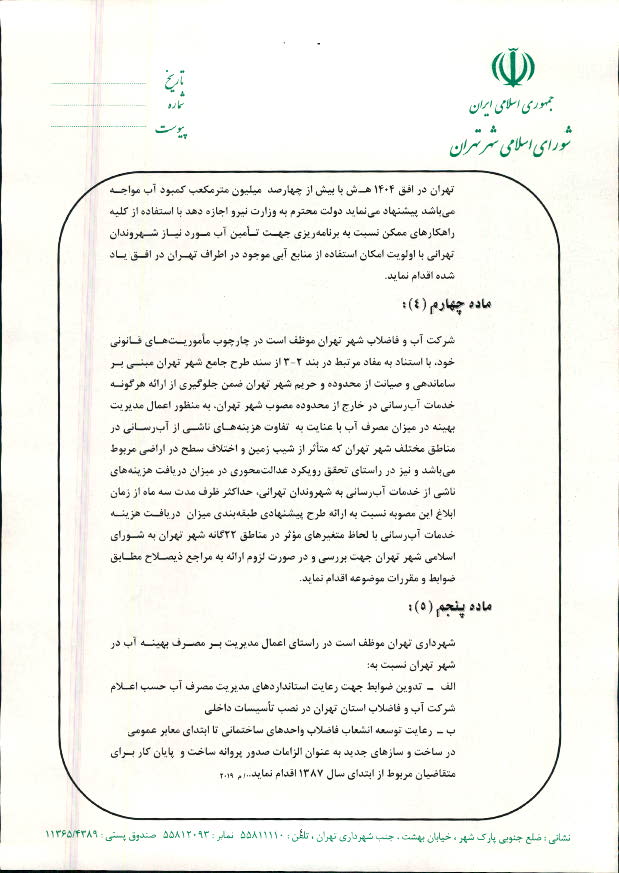 جمهوری اسلامی ایران
شورای اسلامی شهر تهران
تاریخ
شماره
پیوست
تهران در افق ۱۴۰۴ هـ.ش با بیش از چهارصد میلیون مترمکعب کمبود آب مواجه
می‌باشد پیشنهاد می‌نماید دولت محترم به وزارت نیرو اجازه دهد با استفاده از کلیه
راهکارهای ممکن نسبت به برنامه‌ریزی جهت تأمین آب مورد نیاز شهروندان
تهرانی با اولویت امکان استفاده از منابع آبی موجود در اطراف تهران در افق یاد
شده اقدام نماید.
ماده چهارم (٤):
شرکت آب و فاضلاب شهر تهران موظف است در چارچوب مأموریت‌های قانونی
خود، با استناد به مفاد مرتبط در بند ۲-۳ از سند طرح جامع شهر تهران مبنی بر
ساماندهی و صیانت از محدوده و حریم شهر تهران ضمن جلوگیری از ارائه هرگونه
خدمات آب‌رسانی در خارج از محدوده مصوب شهر تهران، به منظور اعمال مدیریت
بهینه در میزان مصرف آب با عنایت به تفاوت هزینه‌های ناشی از آب‌رسانی در
مناطق مختلف شهر تهران که متأثر از شیب زمین و اختلاف سطح در اراضی مربوط
می‌باشد و نیز در راستای تحقق رویکرد عدالت‌محوری در میزان دریافت هزینه‌های
ناشی از خدمات آب‌رسانی به شهروندان تهرانی، حداکثر ظرف مدت سه ماه از زمان
ابلاغ این مصوبه نسبت به ارائه طرح پیشنهادی طبقه‌بندی میزان دریافت هزینه
خدمات آب‌رسانی با لحاظ متغیرهای مؤثر در مناطق ۲۲گانه شهر تهران به شورای
اسلامی شهر تهران جهت بررسی و در صورت لزوم ارائه به مراجع ذیصلاح مطابق
ضوابط و مقررات موضوعه اقدام نماید.
ماده پنجم (٥):
شهرداری تهران موظف است در راستای اعمال مدیریت بر مصرف بهینه آب در
شهر تهران نسبت به:
الف ـ تدوین ضوابط جهت رعایت استانداردهای مدیریت مصرف آب حسب اعلام
شرکت آب و فاضلاب استان تهران در نصب تأسیسات داخلی
ب ـ رعایت توسعه انشعاب فاضلاب واحدهای ساختمانی تا ابتدای معابر عمومی
در ساخت و سازهای جدید به عنوان الزامات صدور پروانه ساخت و پایان کار برای
متقاضیان مربوط از ابتدای سال ۱۳۸۷ اقدام نماید.../م ۲۰۱۹
نشانی : ضلع جنوبی پارک شهر ، خیابان بهشت ، جنب شهرداری تهران ، تلفن : ۵۵۸۱۱۱۱۰ نمابر : ۵۵۸۱۲۰۹۳ صندوق پستی : ۱۱۳۶۵/۴۳۸۹